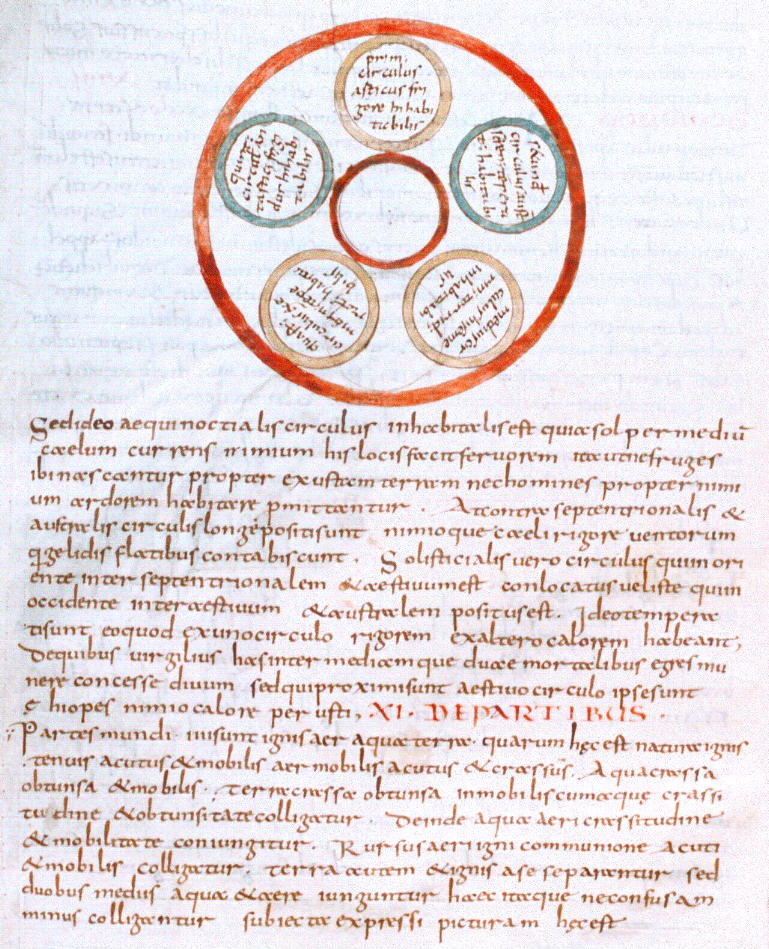 prim.
circulus
arcticus fri
gore inhabi
tabilis
secund
circulus
habitabi
lis
medius cir
culus
inhabitab
lis
quart
circulus
bilis
quint
circul an
tarticus frig
dus inhabi
tabilis
Sed ideo aequinoctialis circulus inhabitalis est quia sol per mediū
caelum currens nimium his locis facit fervorem ita ut nec fruges
ibi nascantur propter exustam terram nec homines propter nimi
um ardorem habitare pmittantur . At contra septentrionalis &
australis circuli longe positi sunt nimioque caeli rigore ventorum
q: gelidis flatibus contabiscunt . Solisticialis vero circulus qui in ori
ente inter septentrionalem & aestivum est conlocatus vel iste qui in
occidente inter aestivum & australem positus est . Ideo tempera
ti sunt eo quod ex uno circulo rigorem ex altero calorem habeant,
De quibus virgilius has inter mediamque duae mortalibus egris mu
nere concesse divum sed qui proximi sunt aestivo circulo ipse sunt
ęthiopes nimio calore per usti, XI. DE PARTIBUS .
Partes mundi iiii sunt ignis aer aquae terra . quarum hęc est natura ignis
tenuis acutus & mobilis aer mobilis acutus & crassus . Aqua crassa
obtunsa & mobilis . terra crassa obtunsa inmobilis cumaque crassi
tudine & obtunsitate colligatur . Deinde aqua aeri crassitudine
& mobilitate coniungitur . Rursus aer igni communione acuti
& mobilis colligatur . terra autem & ignis a se separantur sed
duobus medius aqua & aere iunguntur haec itaque ne confusa m
minus colligantur subiecta expressi picturam hęc est